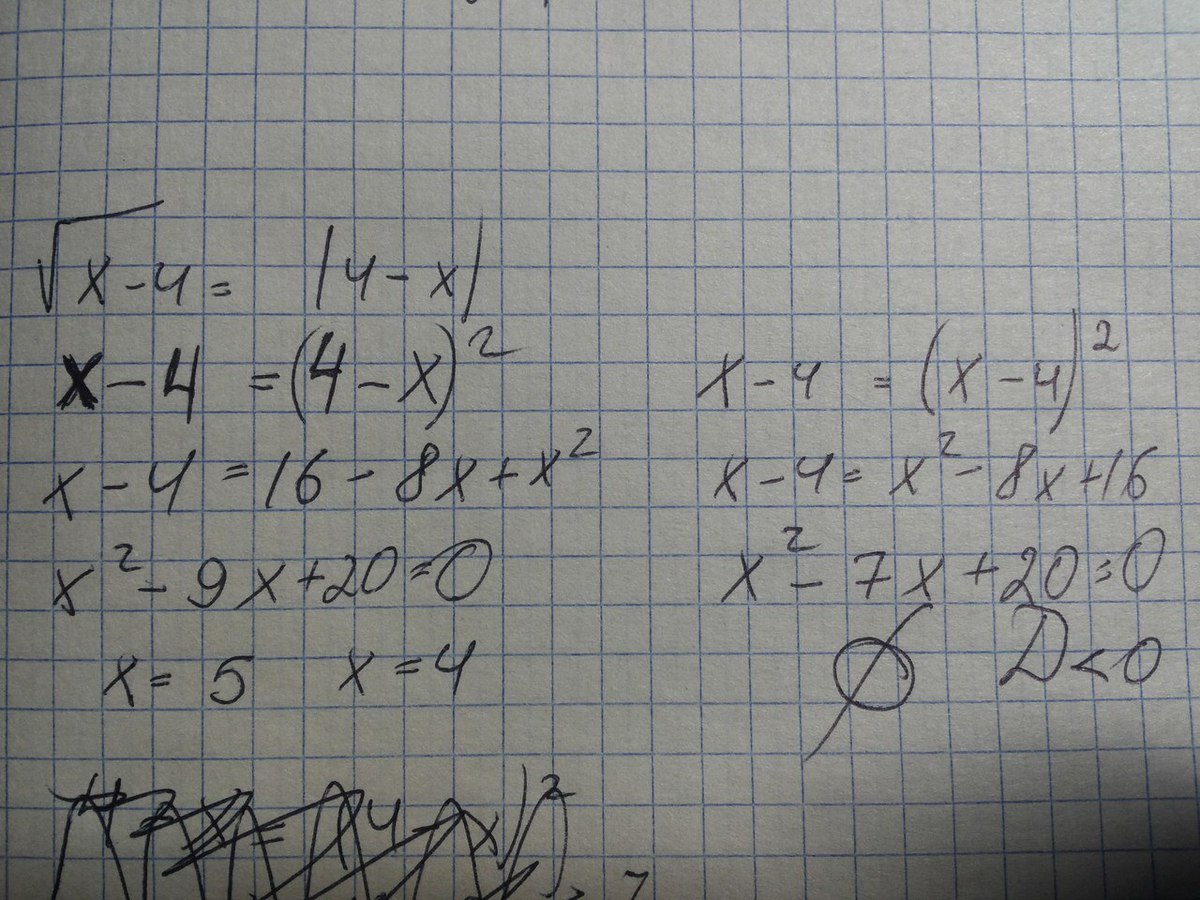 √x-4 = |4-x|
x-4 = (4-x)²
x-4 = 16-8x+x²
x²-9x+20=0
x=5 x=4
x-4 = (x-4)²
x-4= x²-8x+16
x²-7x+20=0
∅ D<0